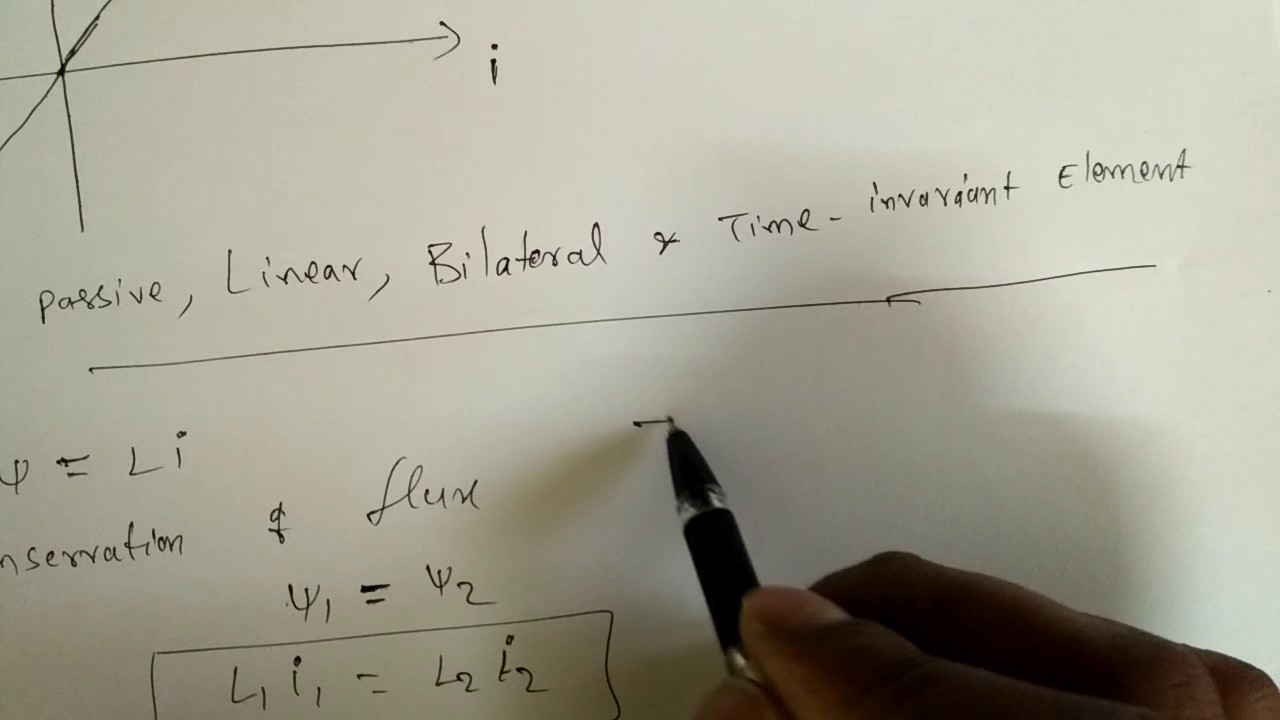 i
passive, Linear, Bilateral & Time-invariant Element
ψ = Li
nservation of flux
ψ₁ = ψ₂
L₁ i₁ = L₂ i₂